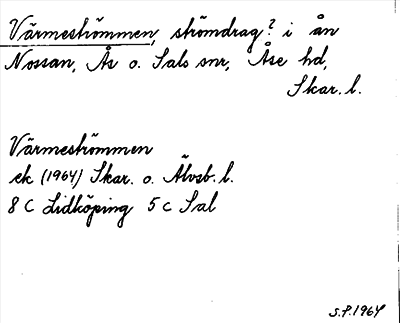 Värmeströmmen, strömdrag? i ån
Nossan, Ås o. Sals snr, Åse hd,
Skar. l.
Värmeströmmen
ek (1964) Skar. o. Älvsb. l.
8 C Lidköping 5 c Sal
S.F. 1964